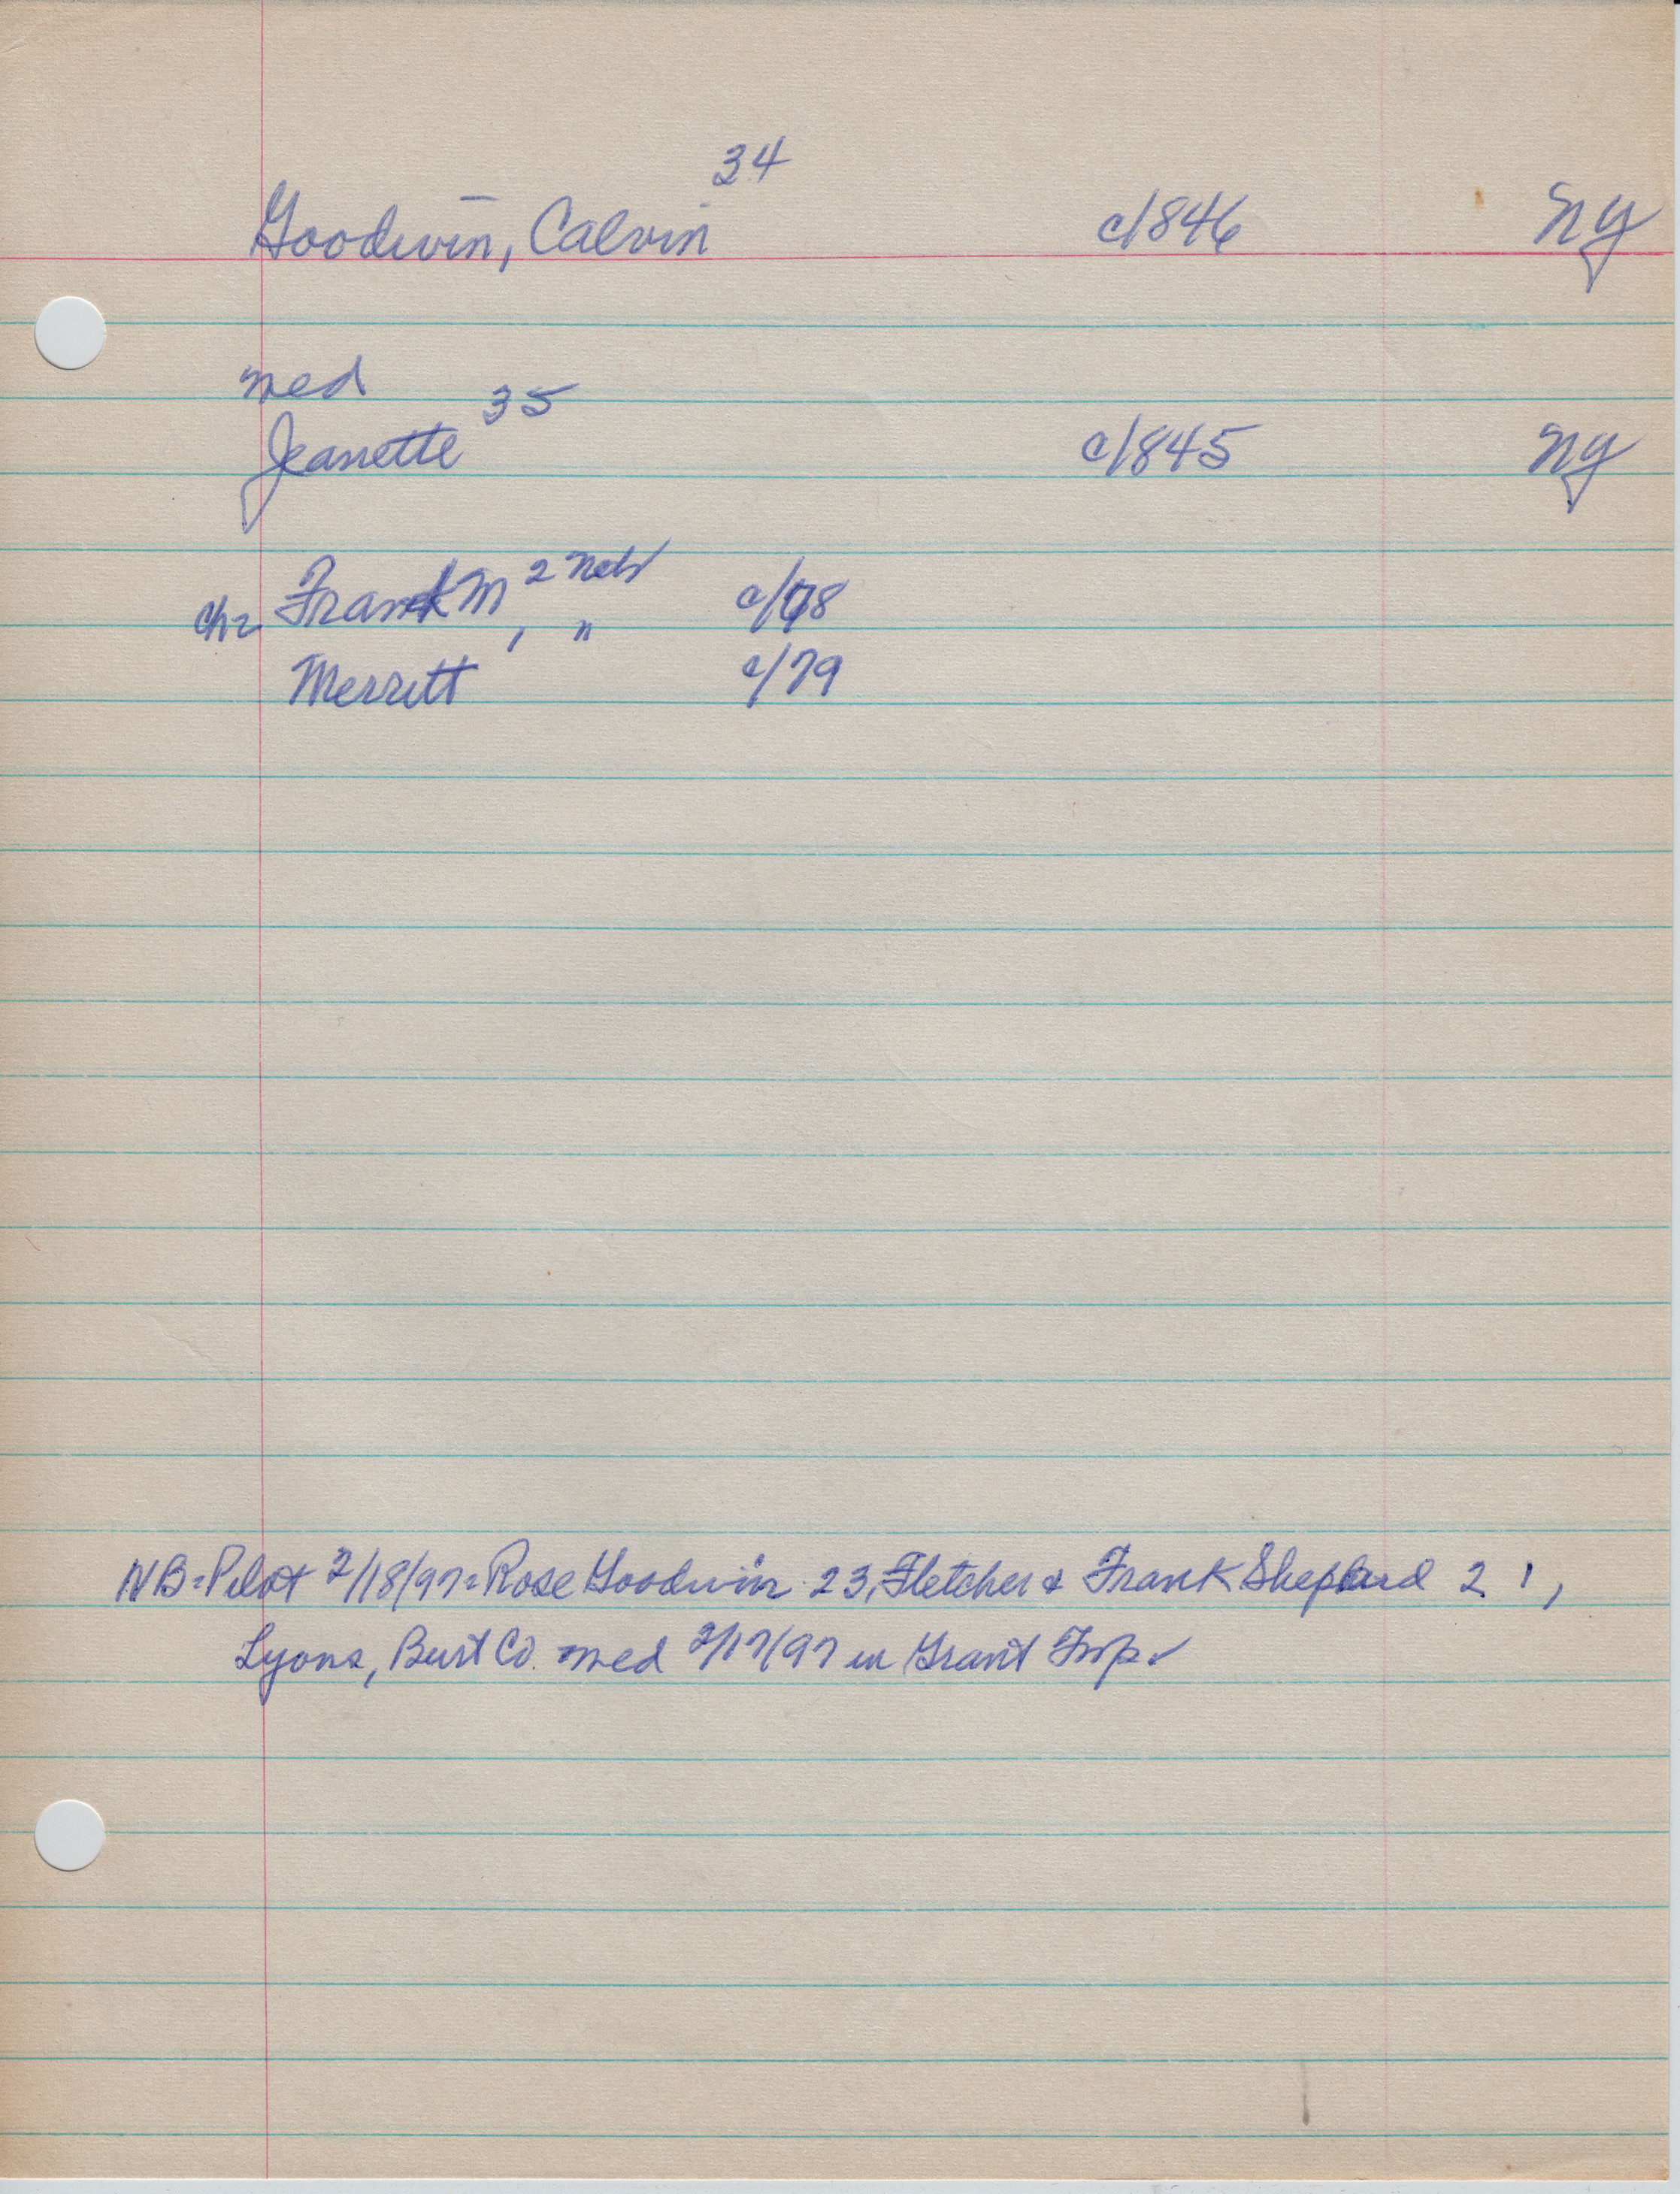 34
Goodwin, Calvin c/846 NY
med
Jeanette 35 c/845 NY
ch= Frank M, 2 Neb c/78
Merritt, 1 " c/79
NB=Pilot 2/18/97=Rose Goodwin 23, Fletcher & Frank Shephard 21,
Lyons, Burt Co. med 2/17/97 in Grant Twp.